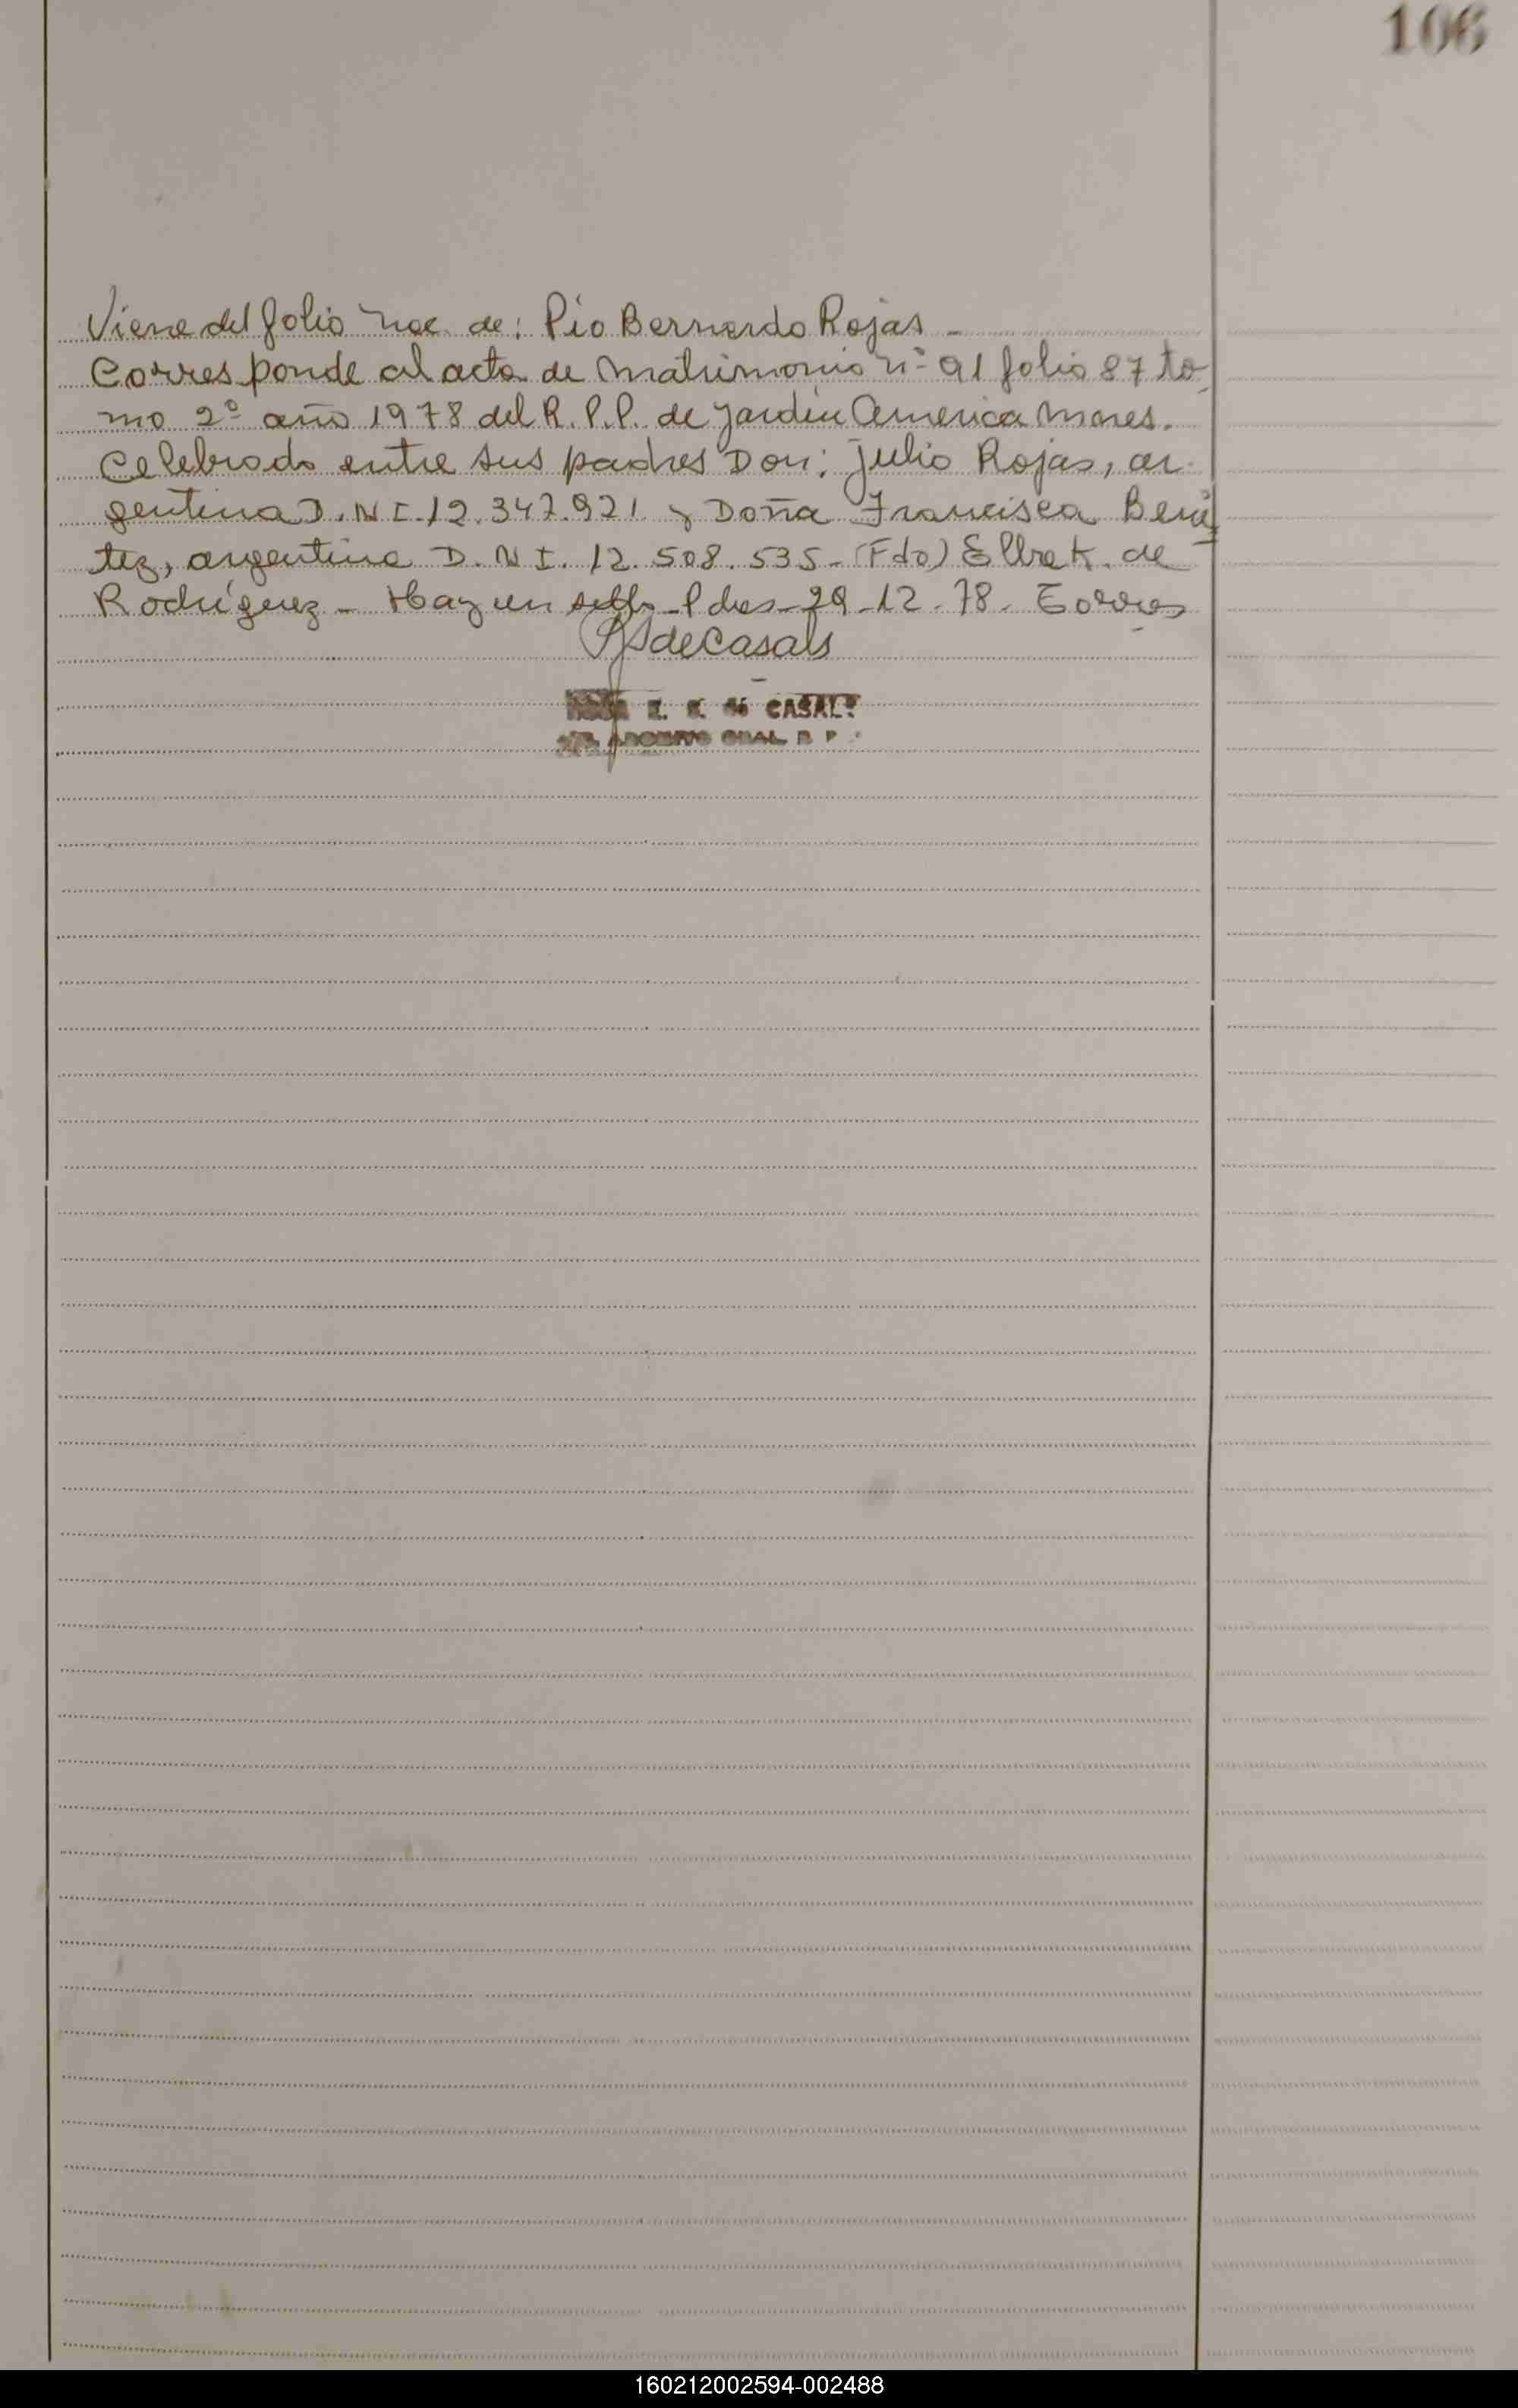 106
Viene del folio Nac. de: Pío Bernardo Rojas -
Corresponde al acta de matrimonio nº 91 folio 87 to-
mo 2º año 1978 del R.P.P. de Jardín America Mnes.
Celebrado entre sus padres Don: Julio Rojas, ar-
gentina D.N.I. 12.347.921 y Doña Francisca Bení
tez, argentina D.N.I. 12.508.535- (Fdo) Elba K. de
Rodríguez - Hay un sello - Pdas - 29-12-78.
de Casals
E. K. de CASALS
ARCHIVO GRAL. R P
160212002594-002488